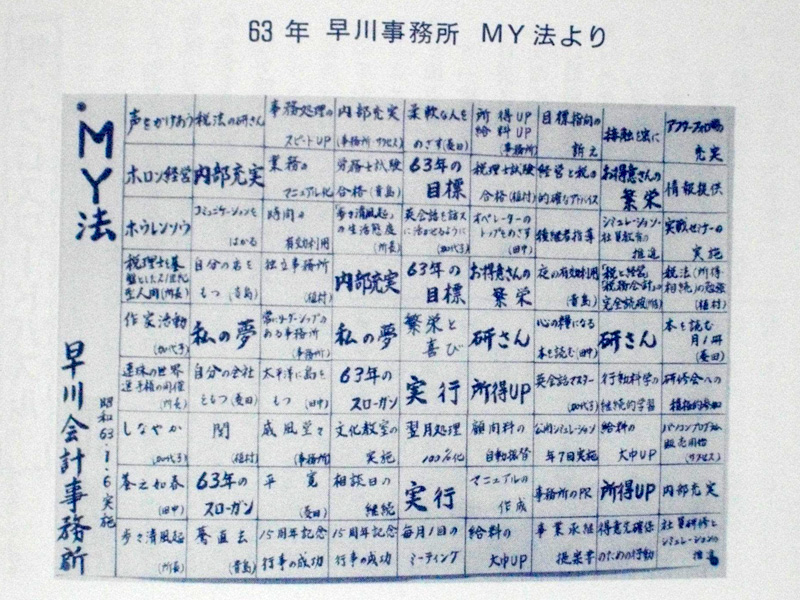 63年 早川事務所 MY法より
MY法
早川会計事務所
昭和63.1.6実施
声をかけあう 税法の研さん 事務処理のスピードUP 内部充実(事務所 サクセス) 柔軟な人をめざす(菱田) 所得UP 給料UP(事務所) 目標指向の訴え 接触を密に アフターフォローの充実
ホロン経営 内部充実 業務のマニュアル化 労務士試験合格(青島) 63年の目標 税理士試験合格(植村) 経営と税の的確なアドバイス お得意さんの繁栄 情報提供
ホウレンソウ コミュニケーションをはかる 時間の有効利用 「歩々清風起」の生活態度(所長) 英会話を話スに活かせるように(加代子) オペレーターのトップをめざす(田中) 後継者指導 シミュレーション・社員教育の推進 実戦セミナーの実施
自分の店をもつ(青島) 独立事務所(植村) 内部充実 63年の目標 お得意さんの繁栄 夜の有効利用(青島) 「税と経営」「税務会計」の完全読破(所長) 税法(所得・相続)の勉強(植村)
作家活動(加代子) 私の夢 常にリーダーシップのある事務所(事務所) 私の夢 繁栄と喜び 研さん 心の糧になる本を読む(田中) 研さん 本を読む月1冊(菱田)
連珠の世界選手権の開催(所長) 自分の会社ともつ(菱田) 太平洋に島をもつ(田中) 63年のスローガン 実行 所得UP 英会話マスター(加代子) 行動科学の継続的学習 研修会への積極的参加
しなやか(加代子) 関(植村) 威風堂々(事務所) 文化教室の実施 翌月処理100%化 顧問料の自動振替 公開シミュレーション年7回実施 給料の大巾UP パソコンプログラム販売開始(サクセス)
碁之如春(田中) 63年のスローガン 平寛(菱田) 相談日の継続 実行 マニュアルの作成 事務所のPR 所得UP 内部充実
歩々清風起(所長) 驀直去(青島) 15周年記念行事の成功 15周年記念行事の成功 毎月1回のミーティング 給料の大巾UP 事業承継提案書 得意先確保のための行動 社員研修とシミュレーションの推進